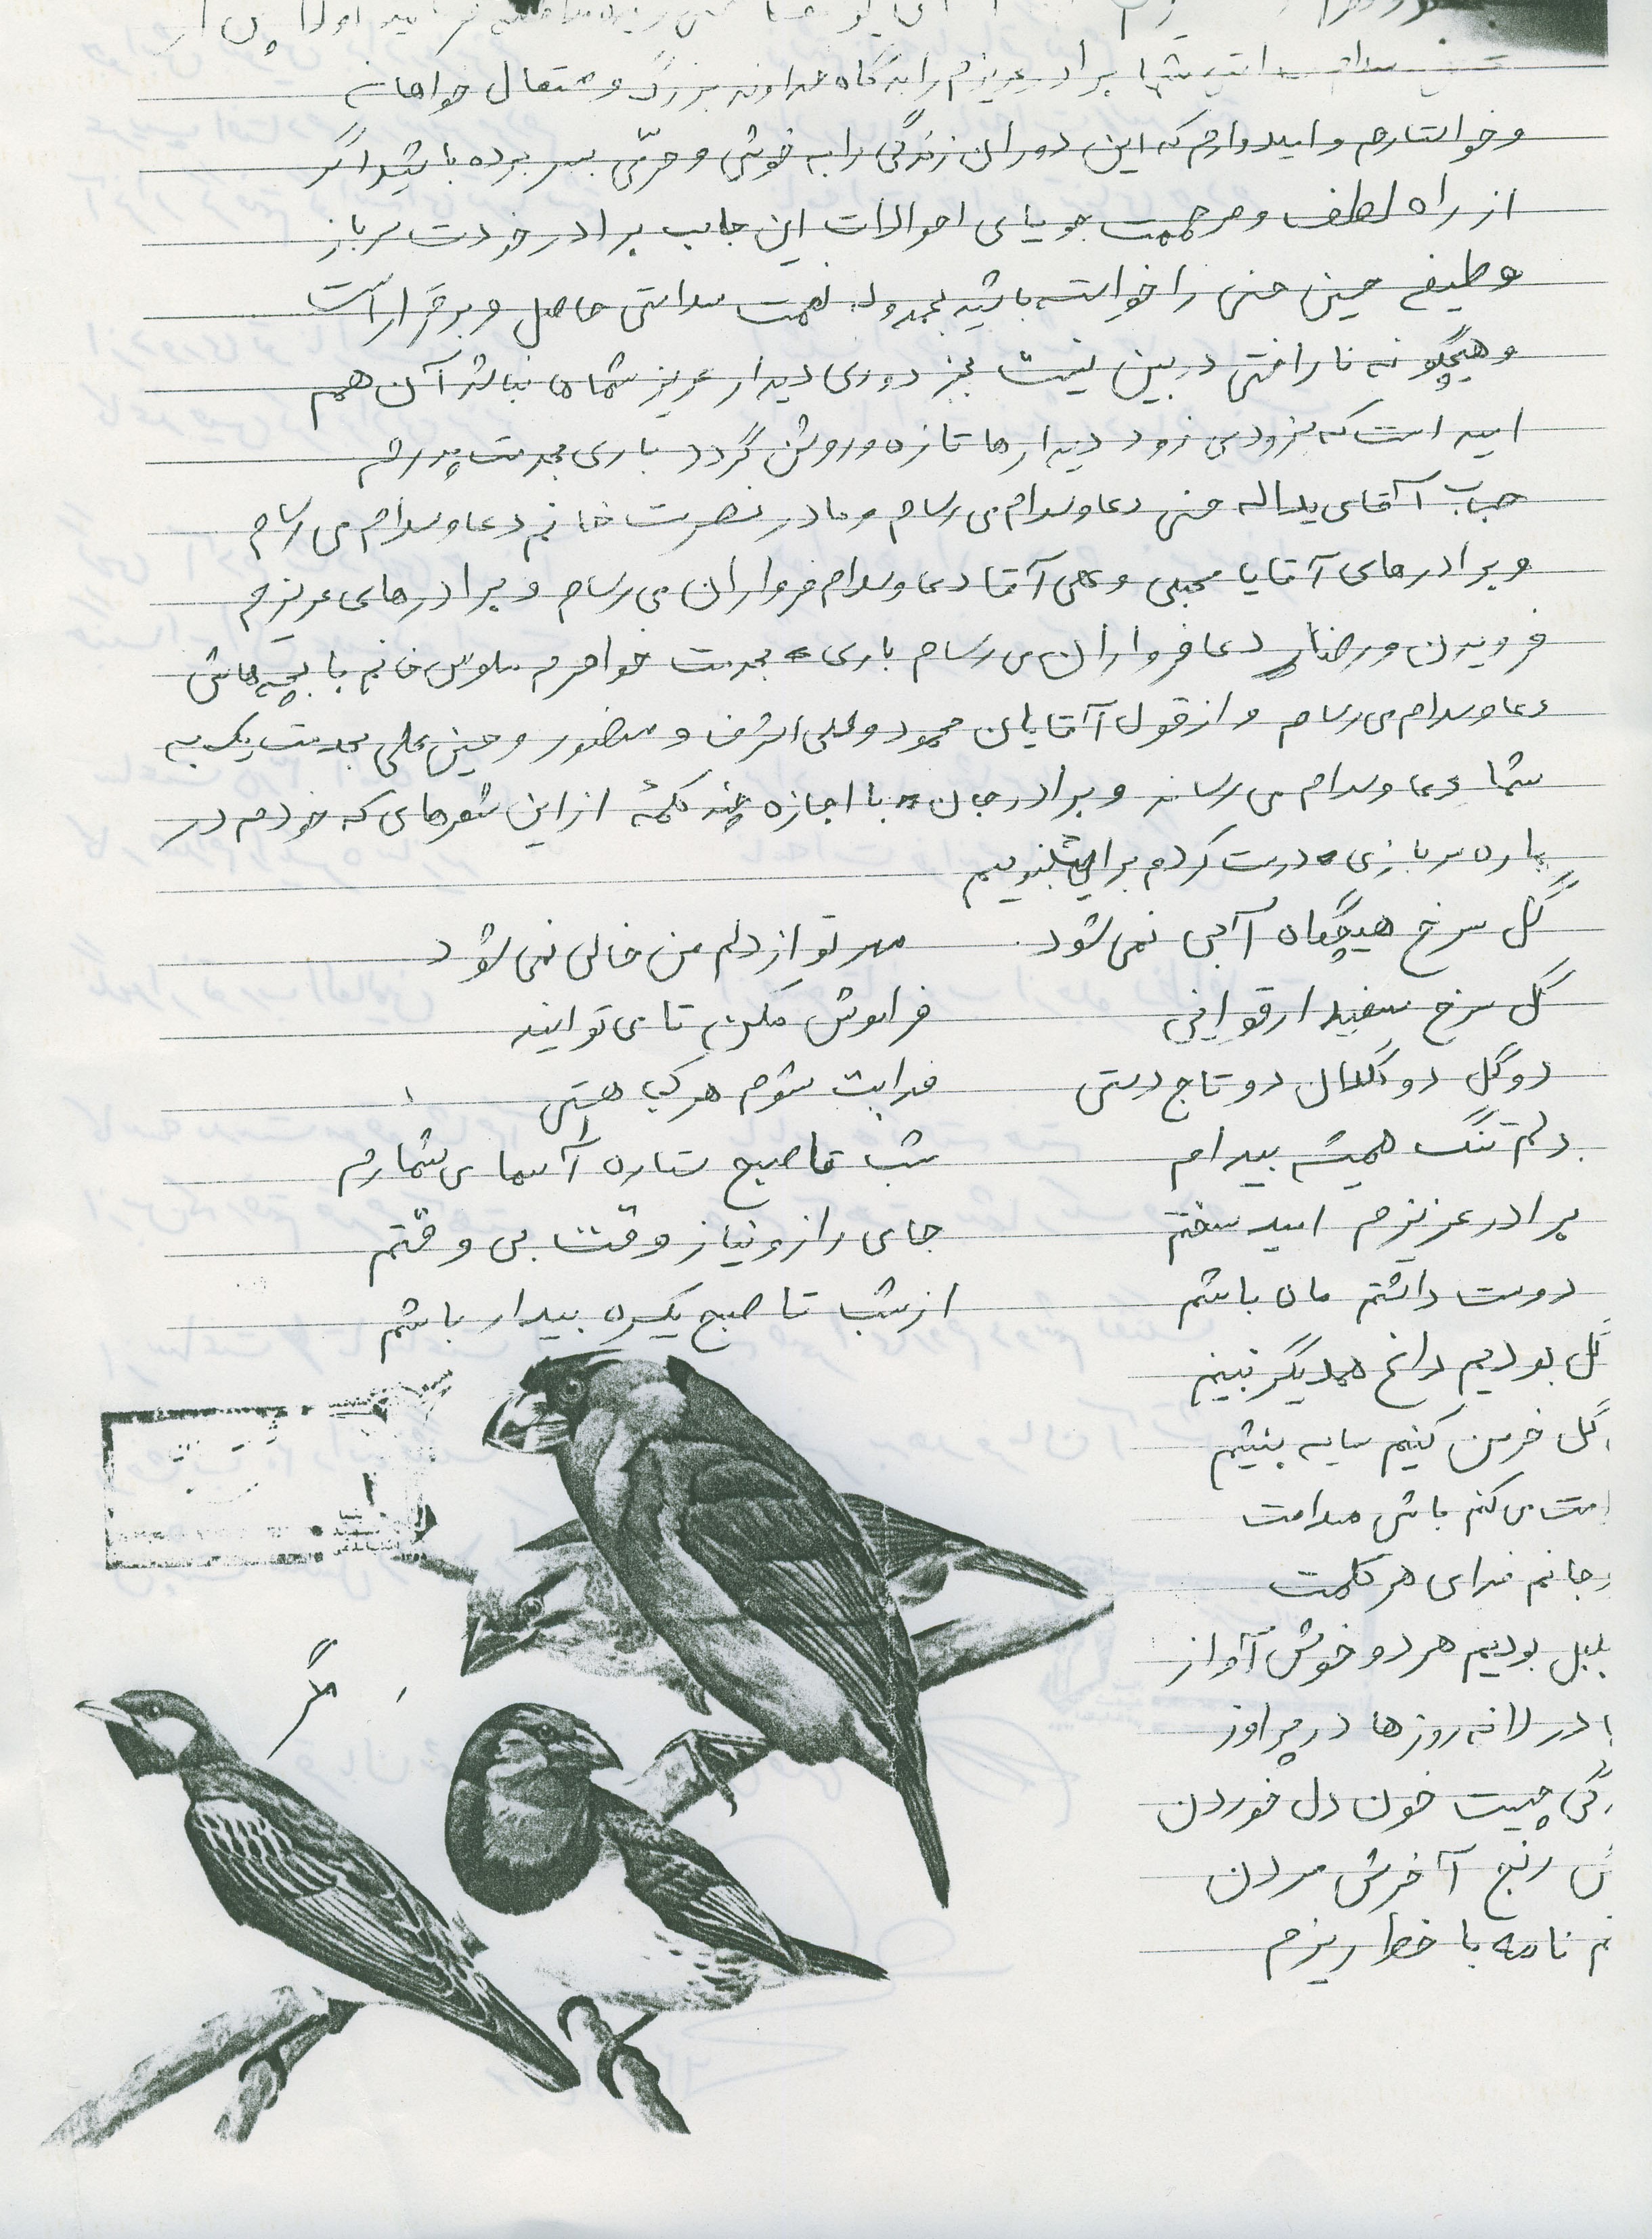 سلامتی شما برادر عزیزم را از درگاه خداوند بزرگ و متعال خواهانم
و خواستارم و امیدوارم که این دوران زندگی را به خوشی و خرّمی بسر برده باشید اگر
از راه لطف و مرحمت جویای احوالات این جانب برادر خودت سرباز
وظیفه حسین حسنی را خواسته باشید بحمدوله نعمت سلامتی حاصل و برقرار است
و هیچگونه ناراحتی در بین نیست بجز دوری دیدار عزیز شماها نباشد آن هم
امید است که بزودی زود دیدارها تازه و روشن گردد باری بخدمت پدرم
جناب آقای یداله حسنی دعا و سلام می رسانم و مادر نصرت خانم دعا و سلام می رسانم
و برادرهای آقایا مجتبی و علی آقا دعا و سلام فراوان می رسانم و برادرهای عزیزم
فریدن و رضا دعا فراوان می رسانم باری بخدمت خواهرم طاوس خانم با بچه هاش
دعا و سلام می رسانم و از قول آقایان محمود و علی اشرف و منصور و حسین علی بخدمت یک به
شما دعا و سلام می رسانند و برادر جان با اجازه چند کلمهٔ از این شعرهای که خودم در
باره سربازی درست کردم برای بنویسم
گل سرخ هیچگاه آبی نمی شود مهر تو از دلم من خالی نمی شود
گل سرخ سفید ارقوانی فراموش مکن تا می توانید
دو گل دو گلدان دو تاج دستی فدایت شوم هر کجا هستی
دلم تنگ همیشه بیدام شب تا صبح ستاره آسمای شمارم
برادر عزیزم امید سختم جای راز و نیاز وقت بی وقتم
دوست داشتم مان باشم از شب تا صبح یکسره بیدار باشم
گل بودیم داغ همدیگر نبینم
گل خرمن کنیم سایه بنشیم
می کنم باش سلامت
جانم فدای هر کلمت
بلبل بودیم هر دو خوش آواز
در لانه روزها در پراوز
چیست خون دل خوردن
رنج آخرش مردن
نامه با خط ریزم